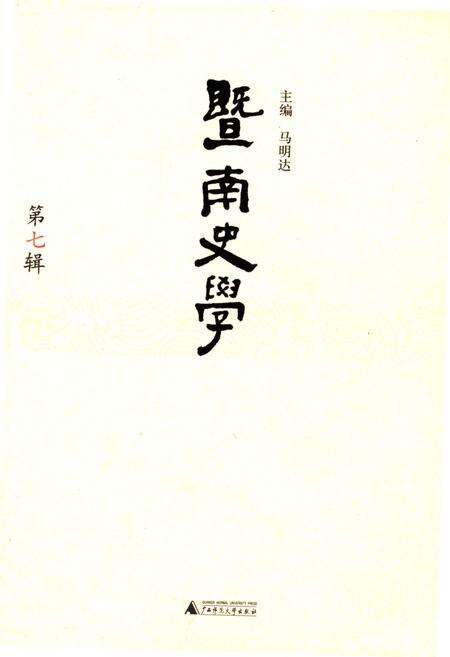 主编 马明达
暨南史學
第七辑
GUANGXI NORMAL UNIVERSITY PRESS
广西师范大学出版社